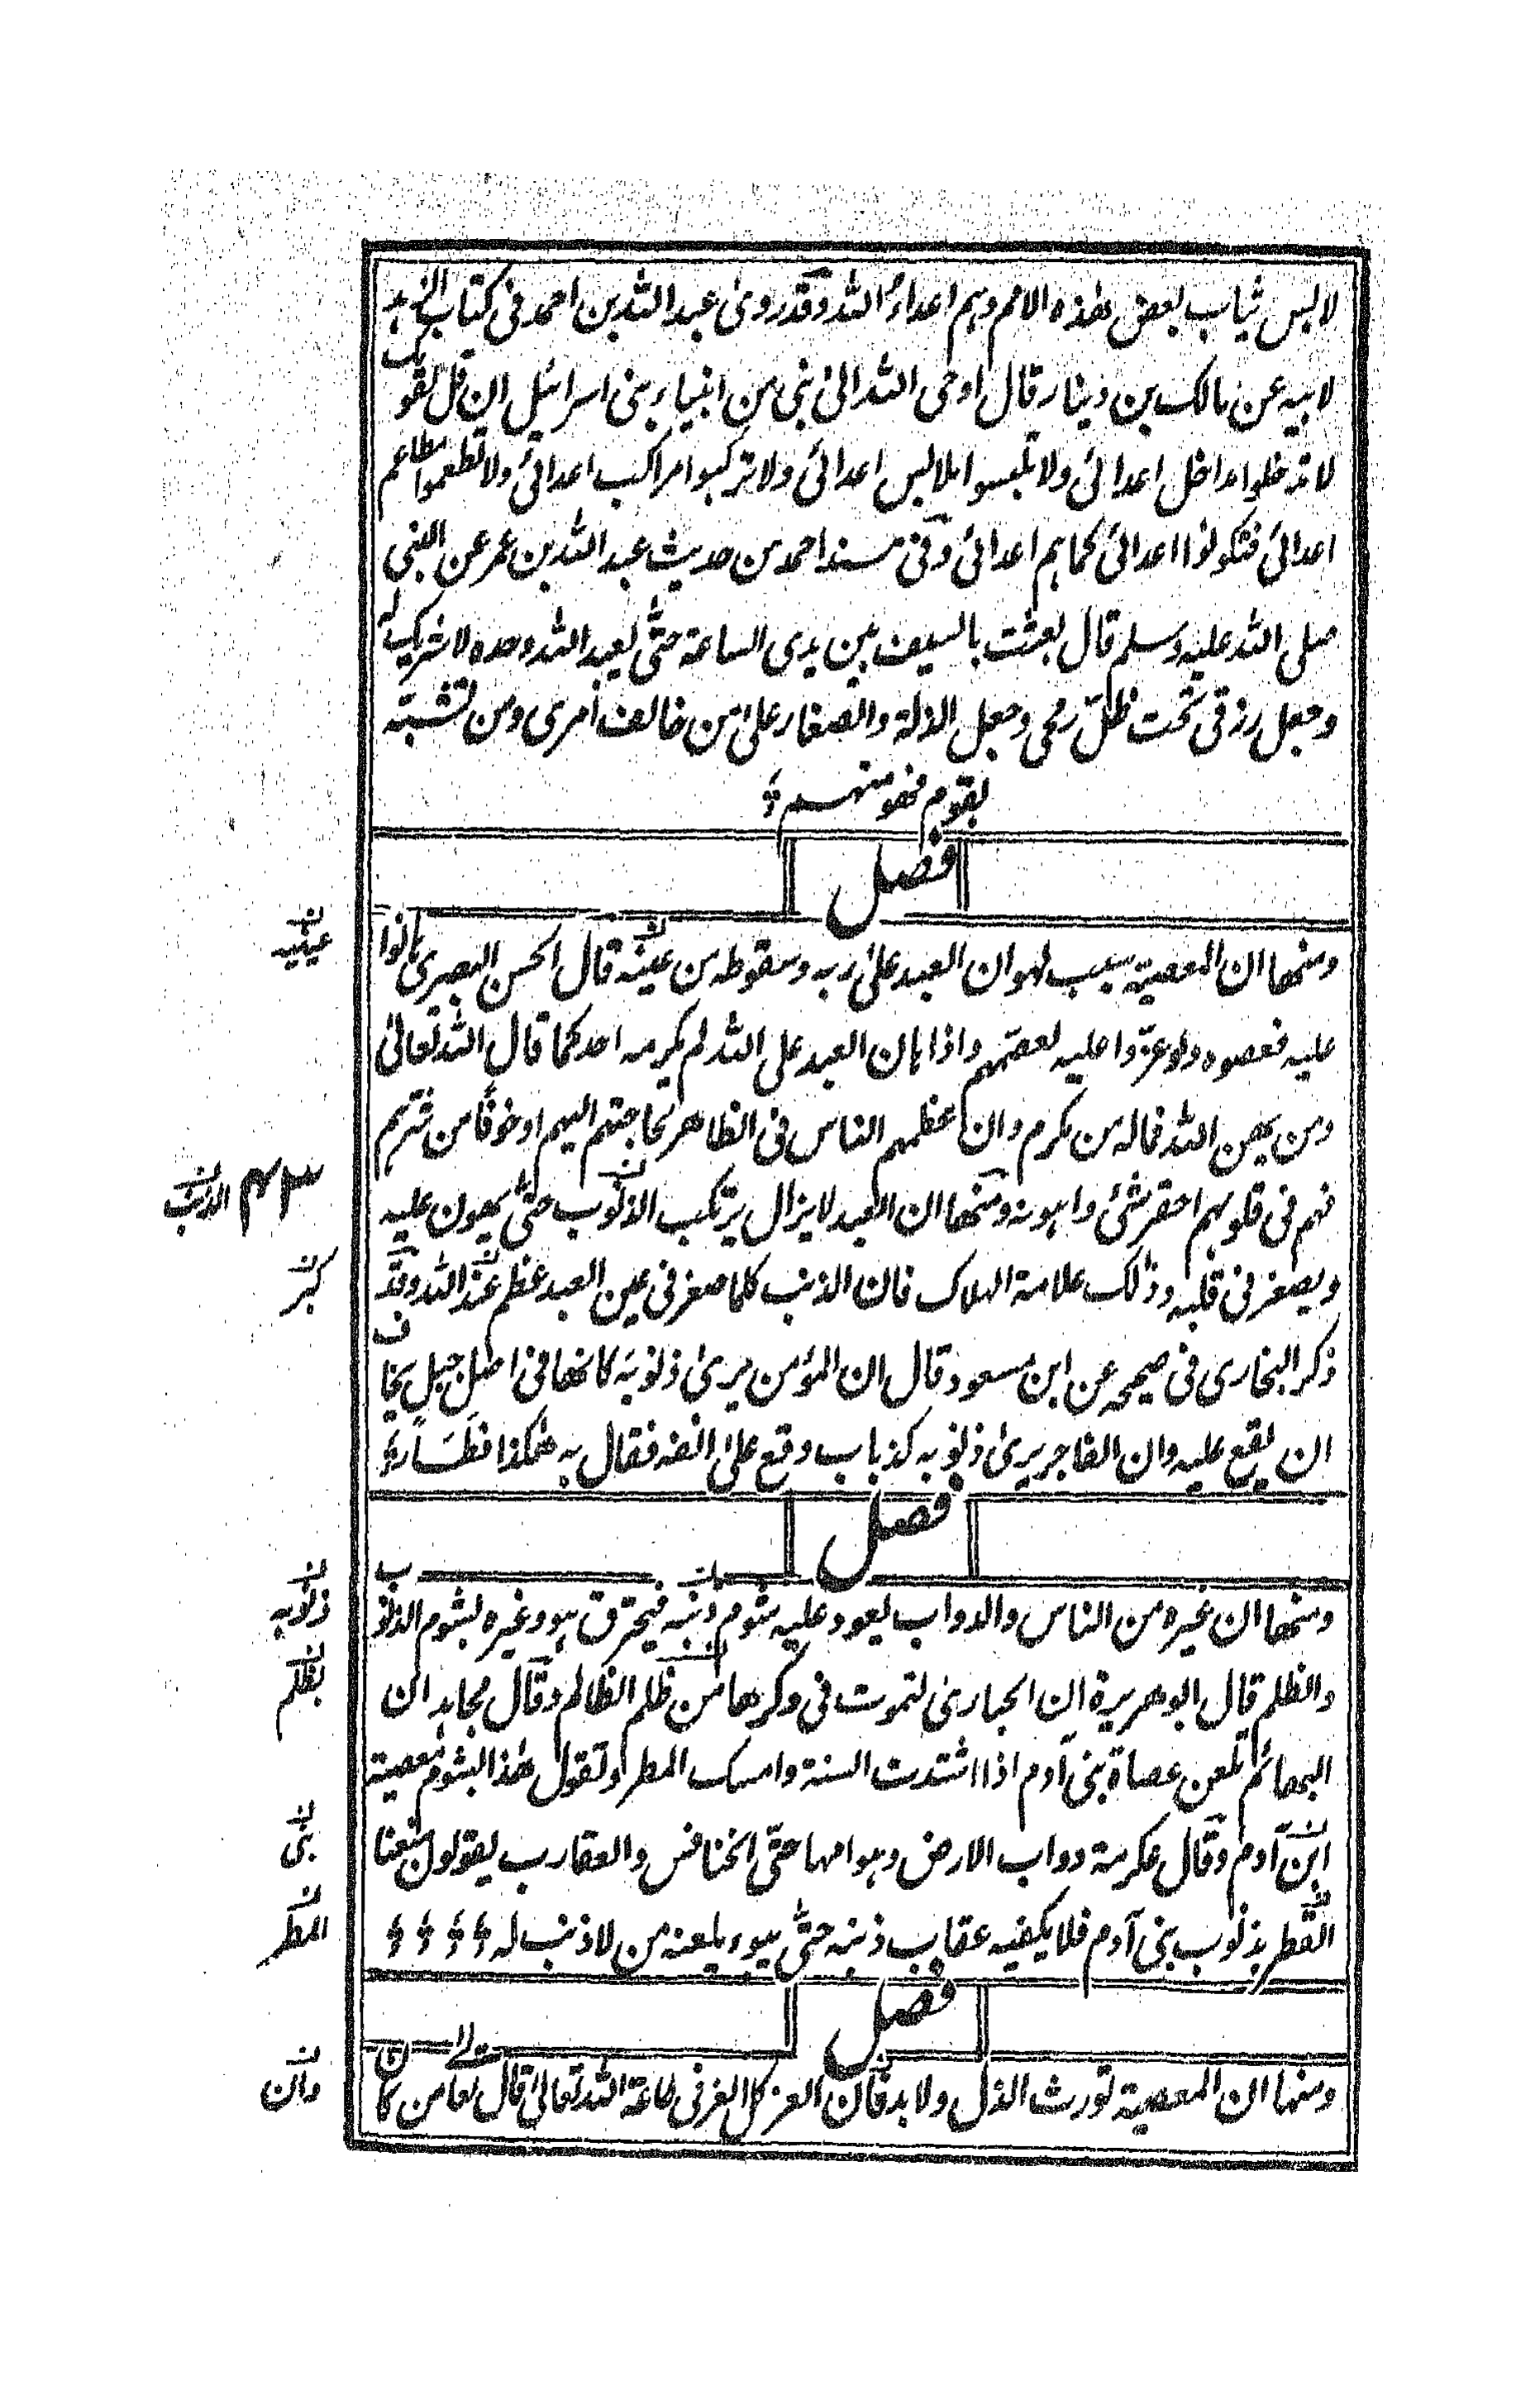 لابس ثياب بعض هذه الامم وهم اعداء الله وقد روى عبد الله بن احمد فى كتاب الزهد
لابيه عن مالك بن دينار قال اوحى الله الى نبى من انبياء بنى اسرائيل ان قل لقومك
لا تدخلوا مداخل اعدائى ولا تلبسوا ملابس اعدائى ولا تركبوا مراكب اعدائى ولا تطعموا مطاعم
اعدائى فتكونوا اعدائى كما هم اعدائى وفى مسند احمد من حديث عبد الله بن عمر عن النبى
صلى الله عليه وسلم قال بعثت بالسيف بين يدى الساعة حتى يعبد الله وحده لا شريك له
وجعل رزقى تحت ظل رمحى وجعل الذلة والصغار على من خالف امرى ومن تشبه
بقوم فهو منهم
فصل
ومنها ان المعصية سبب لهوان العبد على ربه وسقوطه من عينه قال الحسن البصرى هانوا
عليه فعصوه ولو عزوا عليه لعصمهم واذا هان العبد على الله لم يكرمه احد كما قال الله تعالى
ومن يهن الله فماله من مكرم وان عظمهم الناس فى الظاهر لحاجتهم اليهم او خوفًا من شرهم
فهم فى قلوبهم احقر شئ واهونه ومنها ان العبد لا يزال يرتكب الذنوب حتى يهون عليه
ويصغر فى قلبه وذلك علامة الهلاك فان الذنب كلما صغر فى عين العبد عظم عند الله وقد
ذكر البخارى فى صحيحه عن ابن مسعود قال ان المؤمن يرى ذنوبه كانها فى اصل جبل يخاف
ان يقع عليه وان الفاجر يرى ذنوبه كذباب وقع على انفه فقال به هكذا فطار
فصل
ومنها ان غيره من الناس والدواب يعود عليه شوم ذنبه فيحترق هو وغيره بشوم الذنوب
والظلم قال ابو هريرة ان الحبارى لتموت فى وكرها من ظلم الظالم وقال مجاهد ان
البهائم تلعن عصاة بنى آدم اذا اشتدت السنة وامسك المطر وتقول هذا بشوم معصية
ابن آدم وقال عكرمة دواب الارض وهوامها حتى الخنافس والعقارب يقولون منعنا
القطر بذنوب بنى آدم فلا يكفيه عقاب ذنبه حتى يبوء بلعنه من لا ذنب له
فصل
ومنها ان المعصية تورث الذل ولا بد فان العز كل العز فى طاعة الله تعالى قال تعالى من كان
عينيه
٤٣
الذنب
كبر
ذنوبه
بظلم
بنى
المطر
وان